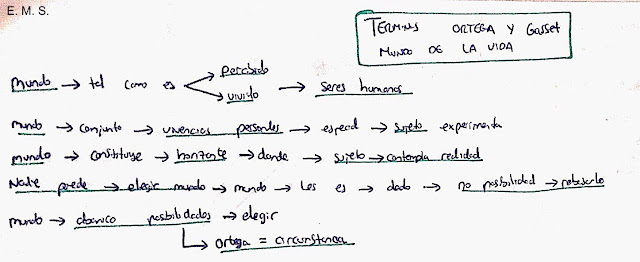 E. M. S.
TERMINS ORTEGA Y Gasset
MUNDO DE LA VIDA
mundo → tal como es → percibido
→ vivido → seres humanos
mundo → conjunto → vivencias personales → especial → sujeto experimenta
mundo → constituye → horizonte → donde → sujeto → contempla realidad
Nadie puede → elegir mundo → mundo → les es → dado → no posibilidad → rebatirlo
mundo → abanico posibilidades → elegir
→ Ortega = circunstancia